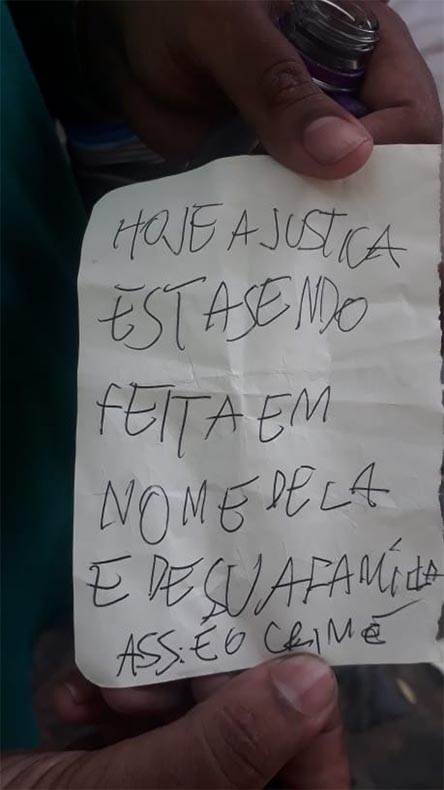 HOJE A JUSTICA
ESTA SENDO
FEITA EM
NOME DELA
E DE SUA FAMÍLIA
ASS: É O CRIME